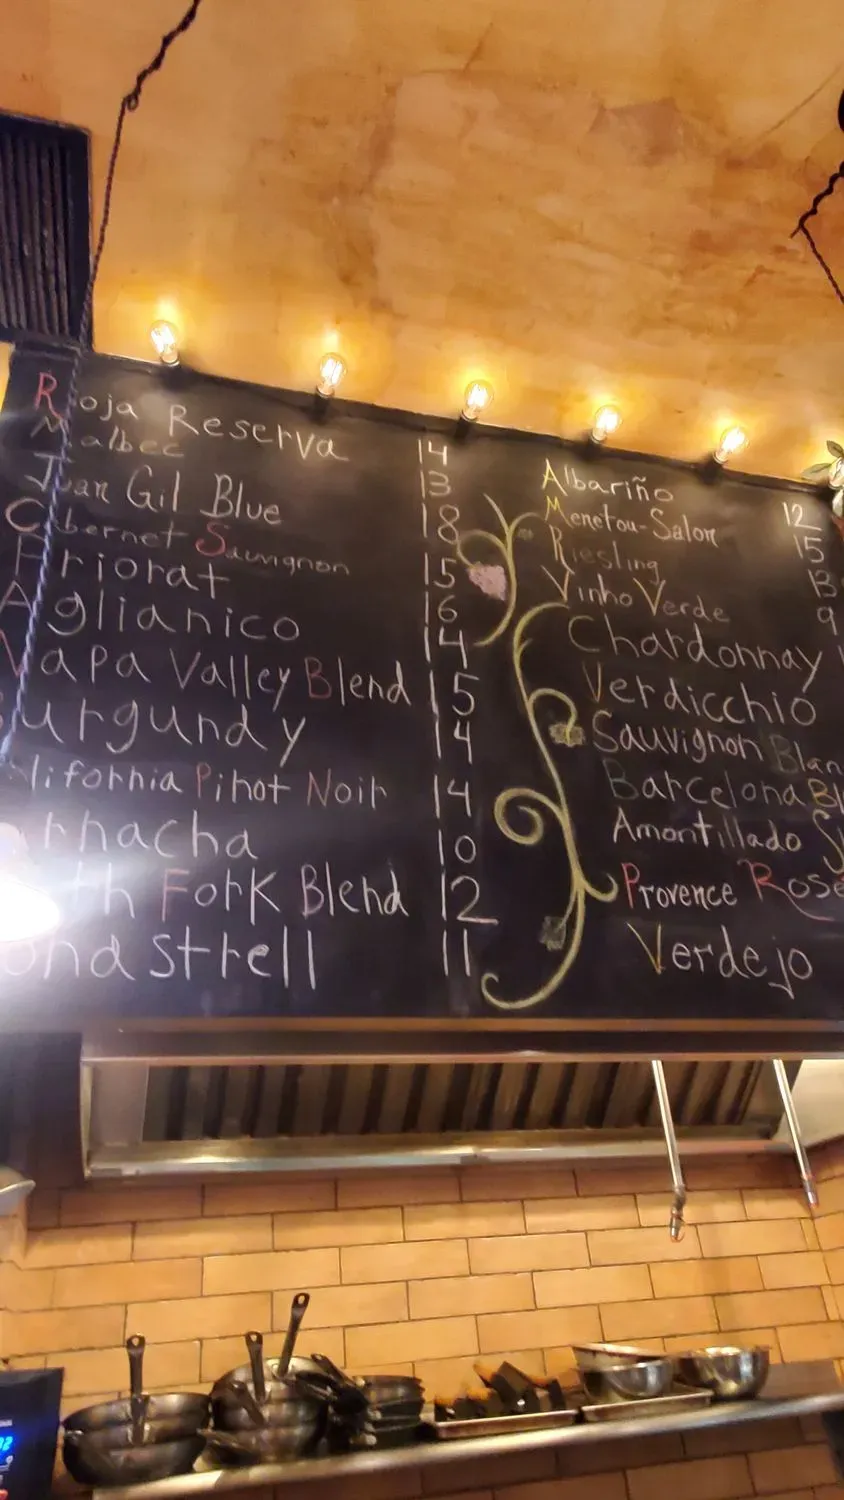 Rioja Reserva 14
Malbec 13
Juan Gil Blue 18
Cabernet Sauvignon 15
Priorat 16
Aglianico 14
Napa Valley Blend 15
Burgundy 14
lifornia Pinot Noir 14
rnacha 10
th Fork Blend 12
onastrell 11
Albariño 12
Menetou-Salon 15
Riesling 13
Vinho Verde 9
Chardonnay
Verdicchio
Sauvignon Blan
Barcelona Bl
Amontillado
Provence Rosé
Verdejo